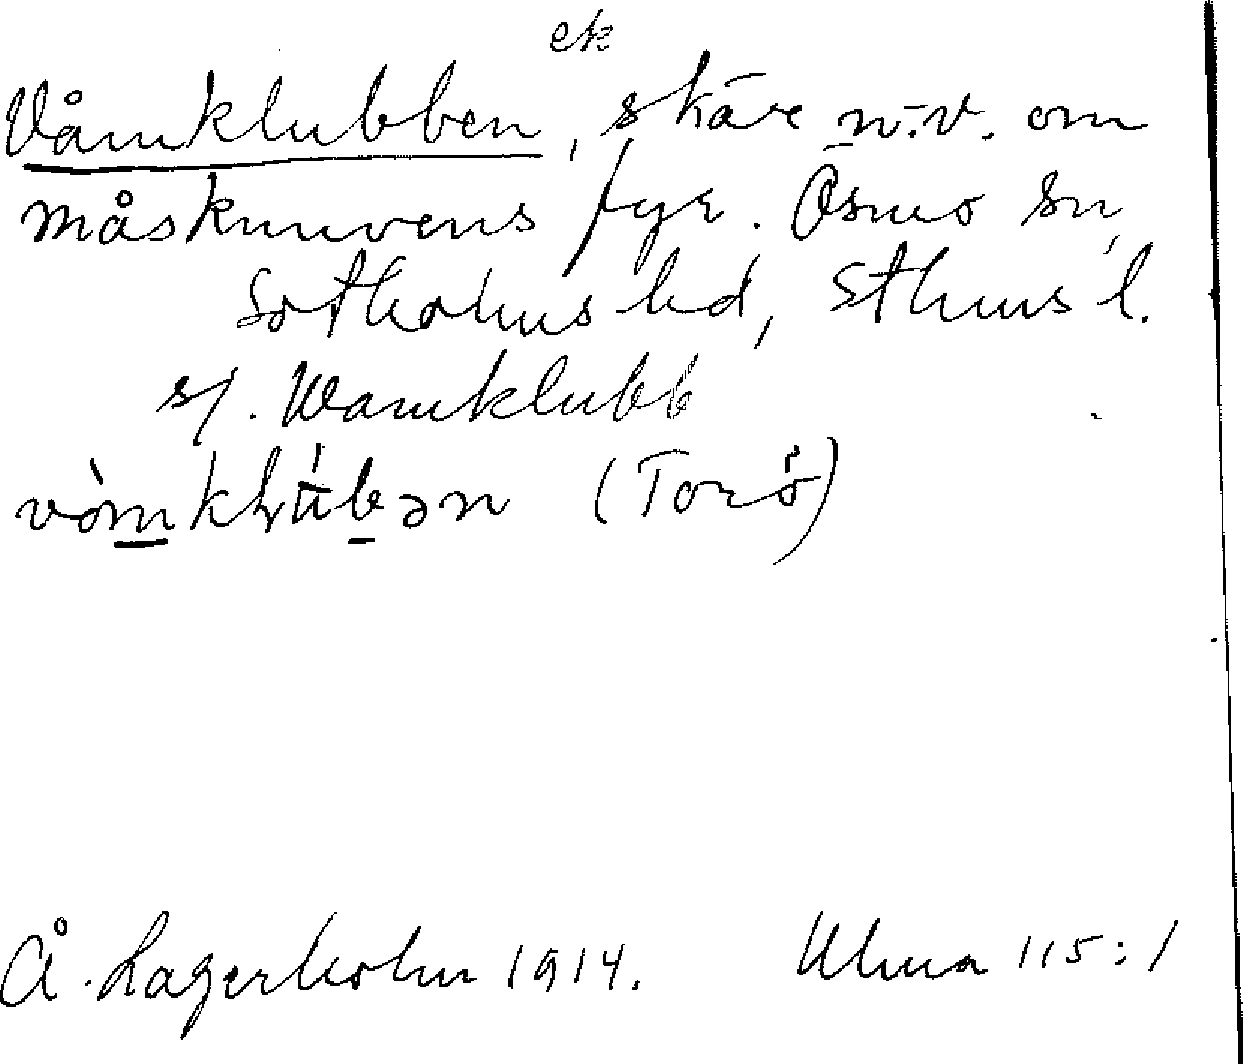 ek
Våmklubben, skär n.v. om
måsknuvens fyr. Ösmo sn,
Sotholms hd, Sthms l.
sj. Wamklubb
vòmklúbən (Torö)
Å. Lagerholm 1914. Ulma 115:1